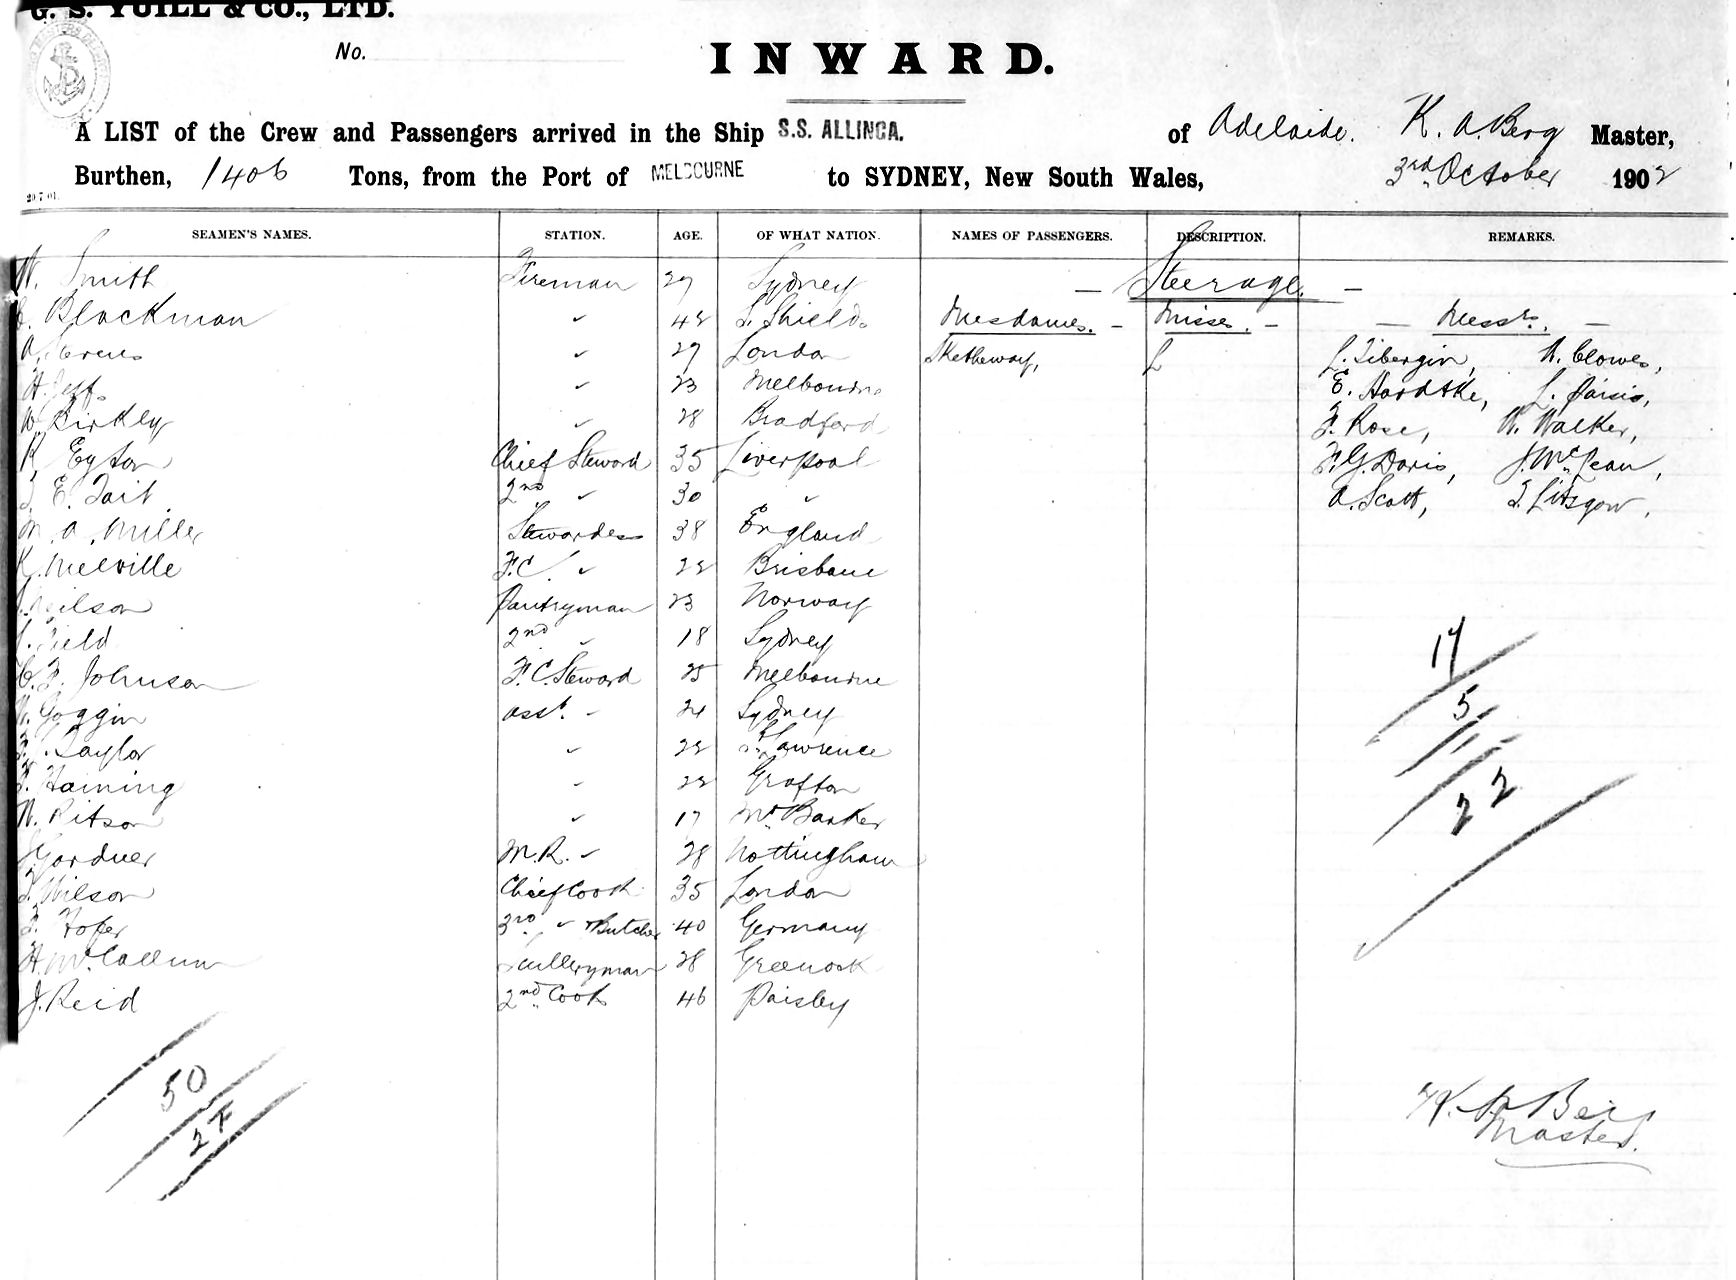 G. S. YUILL & CO., LTD.
No.
INWARD.
A LIST of the Crew and Passengers arrived in the Ship S.S. ALLINGA. of Adelaide. K. A. Berg Master,
Burthen, 1406 Tons, from the Port of MELBOURNE to SYDNEY, New South Wales, 3rd October 1902
20.7.01.
SEAMEN'S NAMES. STATION. AGE. OF WHAT NATION. NAMES OF PASSENGERS. DESCRIPTION. REMARKS.
W. Smith Fireman 27 Sydney — Steerage. —
Blackman " 42 S. Shields Mesdames. — Misses. — — Messrs. —
" 29 London L. Tibergin, W. Clowes,
H. Jeff. " 23 Melbourne E. Hardtke, L. Parsis,
W. Birkly " 28 Bradford F. Rose, W. Walker,
R. Eyton Chief Steward 35 Liverpool F. G. Davis, J. McLean,
E. Tait 2nd " 30 " A. Scott, Litsgow.
M. A. Miller Stewardess 38 England
K. Melville F.C. " 22 Brisbane
Nilson Pantryman 23 Norway
Field 2nd " 18 Sydney
C. F. Johnson F.C. Steward 25 Melbourne
W. Goggin asst. " 21 Sydney
Taylor " 22 St. Lawrence
F. Haining " 22 Grafton
W. Ritson " 17 Mt. Barker
J. Gardner M.R. " 28 Nottingham
T. Wilson Chief Cook 35 London
F. Hofer 3rd " & Butcher 40 Germany
H. McCallum Sculleryman 28 Greenock
J. Reid 2nd Cook 46 Paisley
17
5
22
50
2 F
K. A. Berg
Master.